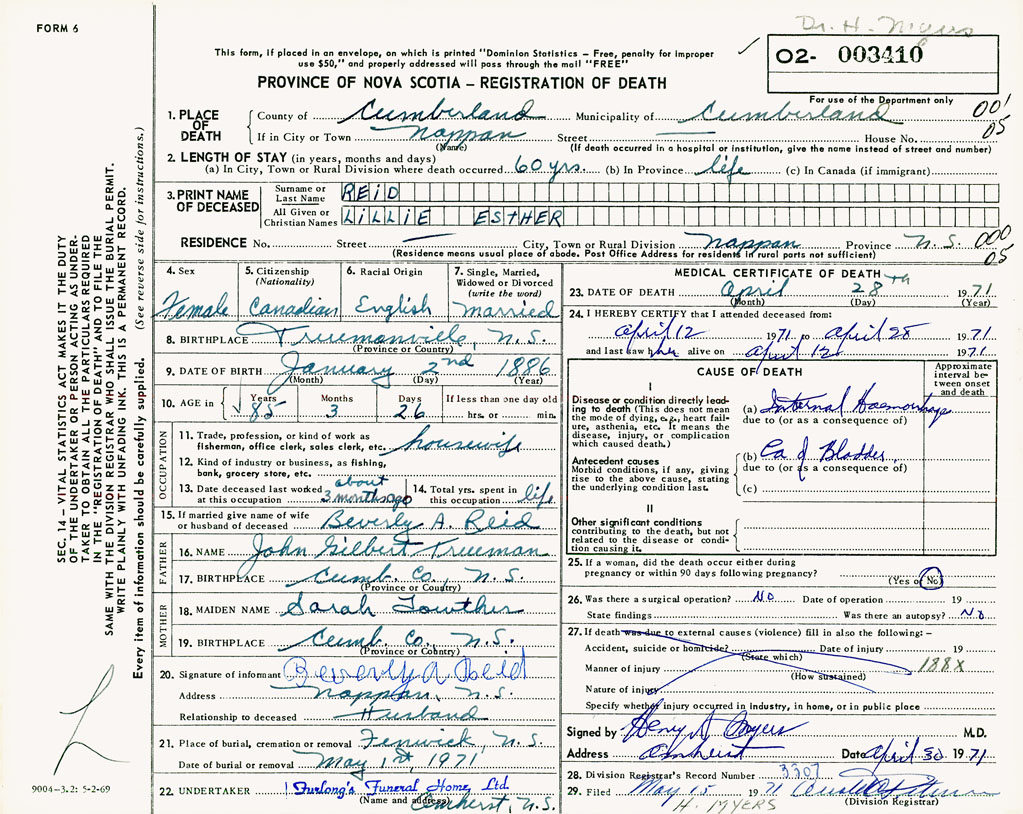 FORM 6
Dr. H. Myers
This form, if placed in an envelope, on which is printed "Dominion Statistics – Free, penalty for improper
use $50," and properly addressed will pass through the mail "FREE"
02- 003410
PROVINCE OF NOVA SCOTIA – REGISTRATION OF DEATH
For use of the Department only
1. PLACE OF DEATH
County of Cumberland Municipality of Cumberland 001
If in City or Town Nappan Street — House No. 05
(Name) (If death occurred in a hospital or institution, give the name instead of street and number)
2. LENGTH OF STAY (in years, months and days)
(a) In City, Town or Rural Division where death occurred 60 yrs. (b) In Province life (c) In Canada (if immigrant)
3. PRINT NAME OF DECEASED
Surname or Last Name REID
All Given or Christian Names LILLIE ESTHER
RESIDENCE No. Street — City, Town or Rural Division Nappan Province N.S. 000
(Residence means usual place of abode. Post Office Address for residents in rural parts not sufficient) 05
4. Sex Female
5. Citizenship (Nationality) Canadian
6. Racial Origin English
7. Single, Married, Widowed or Divorced (write the word) Married
8. BIRTHPLACE Truemanville, N.S.
(Province or Country)
9. DATE OF BIRTH January 2nd 1886
(Month) (Day) (Year)
10. AGE in Years 85 Months 3 Days 26 If less than one day old hrs. or min.
OCCUPATION
11. Trade, profession, or kind of work as fisherman, office clerk, sales clerk, etc. housewife
12. Kind of industry or business, as fishing, bank, grocery store, etc.
13. Date deceased last worked at this occupation about 3 months ago
14. Total yrs. spent in this occupation life
15. If married give name of wife or husband of deceased Beverly A. Reid
FATHER
16. NAME John Gilbert Trueman
17. BIRTHPLACE Cumb. Co., N.S.
(Province or Country)
MOTHER
18. MAIDEN NAME Sarah Lowther
19. BIRTHPLACE Cumb. Co. N.S.
(Province or Country)
20. Signature of informant Beverly A Reid
Address Nappan, N.S.
Relationship to deceased Husband
21. Place of burial, cremation or removal Fenwick, N.S.
Date of burial or removal May 1st 1971
22. UNDERTAKER Furlong's Funeral Home Ltd
(Name and address) Amherst, N.S.
MEDICAL CERTIFICATE OF DEATH
23. DATE OF DEATH April 28th 1971
(Month) (Day) (Year)
24. I HEREBY CERTIFY that I attended deceased from:
April 12 1971 to April 28 1971
and last saw her alive on April 12 1971
CAUSE OF DEATH
Approximate interval between onset and death
I
Disease or condition directly leading to death (This does not mean the mode of dying, e.g., heart failure, asthenia, etc. It means the disease, injury, or complication which caused death.)
(a) Internal Haemorrhage
due to (or as a consequence of)
Antecedent causes
Morbid conditions, if any, giving rise to the above cause, stating the underlying condition last.
(b) Ca of Bladder
due to (or as a consequence of)
(c)
II
Other significant conditions
contributing to the death, but not related to the disease or condition causing it.
25. If a woman, did the death occur either during pregnancy or within 90 days following pregnancy?
(Yes or No)
26. Was there a surgical operation? No Date of operation 19
State findings Was there an autopsy? No
27. If death was due to external causes (violence) fill in also the following: –
Accident, suicide or homicide? Date of injury 19
(State which)
Manner of injury 188X
(How sustained)
Nature of injury
Specify whether injury occurred in industry, in home, or in public place
Signed by Henry Myers M.D.
Address Amherst Date April 30 1971
28. Division Registrar's Record Number 3307
29. Filed May 15 1971
(Division Registrar)
H. MYERS
SEC. 14 – VITAL STATISTICS ACT MAKES IT THE DUTY
OF THE UNDERTAKER OR PERSON ACTING AS UNDER-
TAKER TO OBTAIN ALL THE PARTICULARS REQUIRED
IN THE "REGISTRATION OF DEATH" AND TO FILE THE
SAME WITH THE DIVISION REGISTRAR WHO SHALL ISSUE THE BURIAL PERMIT.
WRITE PLAINLY WITH UNFADING INK. THIS IS A PERMANENT RECORD.
Every item of information should be carefully supplied. (See reverse side for instructions.)
9004-3.2: 5-2-69